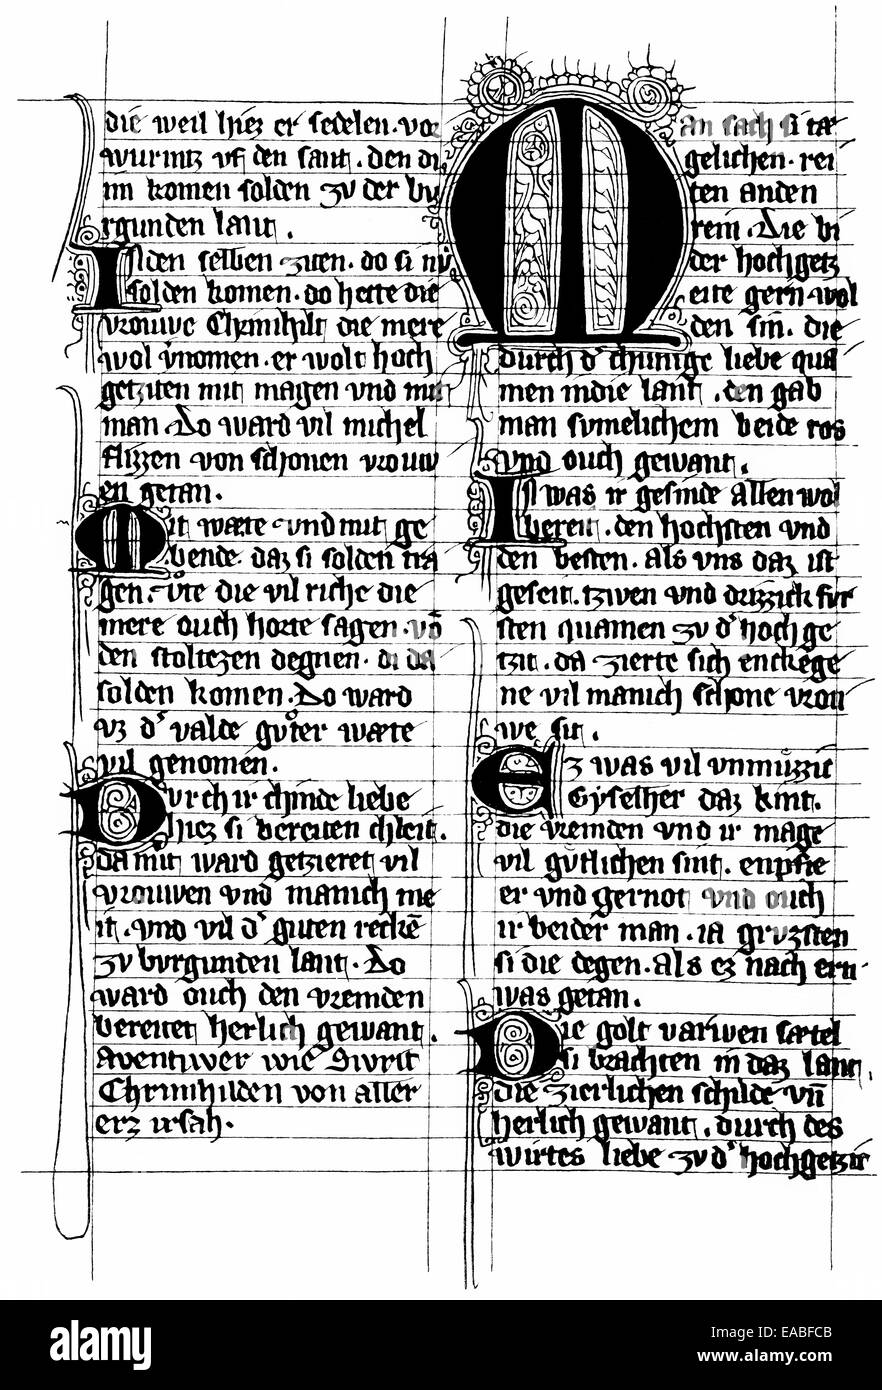 die weil hiez er sedelen. vor
wurmtz vf den sant. den di
im komen solden zv der bv
rgunden lant.
In den selben ziten. do si nv̂
solden komen. do hette die
vrouwe Chrimhilt die mere
wol v̂nomen. er wolt hoch
getziten mit magen vnd mit
man. Do ward vil michel
flizzen von schonen vrouw
en getan.
Mit wæte. vnd mit ge
bende. daz si solden tra
gen. Vͦte die vil riche die
mere ouch horte sagen. vō
den stoltezen degnen. di da
solden komen. Do ward
vz d' valde gvͦter wæte
vil genomen.
Dvrch ir chinde liebe
hiez si bereiten chleit.
da mit ward getzieret vil
vrouwen vnd manich me
it. vnd vil d' guten reckē
zv bvrgunden lant. Do
ward ouch den vremden
bereitet herlich gewant.
aventiwer wie Sivrit
Chrimhilden von aller
erz irsah.
Man sach si tæ
gelichen. rei
ten anden
rein. Die bi
der hochgetz
eite gern. wol
den sin. die
durch d' chunige liebe qua
men indie lant. den gab
man svmelichem beide ros
vnd ouch gewant.
In was ir gesinde allen wol
bereit. den hochsten vnd
den besten. als vns daz ist
geseit. tzwen vnd drizzick fvr
sten quamen zv d' hoch ge
tzit. da zierte sich enckege
ne vil manich schone vrou
we sit.
Ez was vil vnmuͤzzic
Gyselher daz kint.
die vremden vnd ir mage
vil guͤtlichen sint. enpfie
er vnd gernot vnd ouch
ir beider man. ia grvzsten
si die degen. als ez nach ern
was getan.
Die golt varwen sætel
si brachten in daz lant.
die zierlichen schilde vn̄
herlich gewant. durch des
wirtes liebe zv d' hochgetzit
alamy
Image ID: EABFCB
www.alamy.com